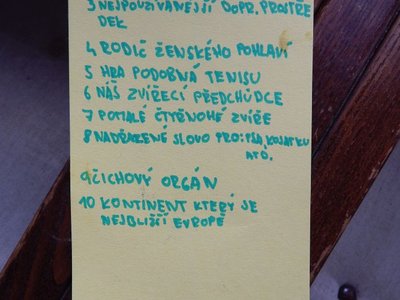 3 NEJPOUŽÍVANĚJŠÍ DOPR. PROSTŘE
DEK
4 RODIČ ŽENSKÉHO POHLAVÍ
5 HRA PODOBNÁ TENISU
6 NÁŠ ZVÍŘECÍ PŘEDCHŮDCE
7 POMALÉ ČTYŘNOHÉ ZVÍŘE
8 NADŘAZENÉ SLOVO PRO: PSA,
ATD.
9 ČICHOVÝ ORGÁN
10 KONTINENT KTERÝ JE
NEJBLIŽŠÍ EVROPĚ